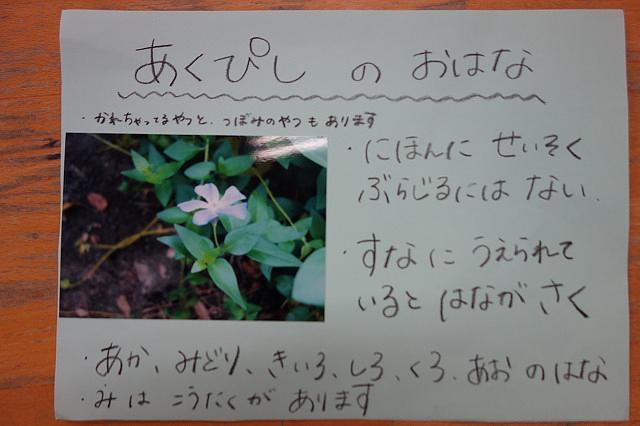 あくぴし の おはな
・かれちゃってるやつと、つぼみのやつも あります
・にほんに せいそく
ぶらじるには ない.
・すなに うえられて
いると はなが さく
・あか、みどり、きいろ、しろ、くろ、あお のはな
・みは こうたくが あります